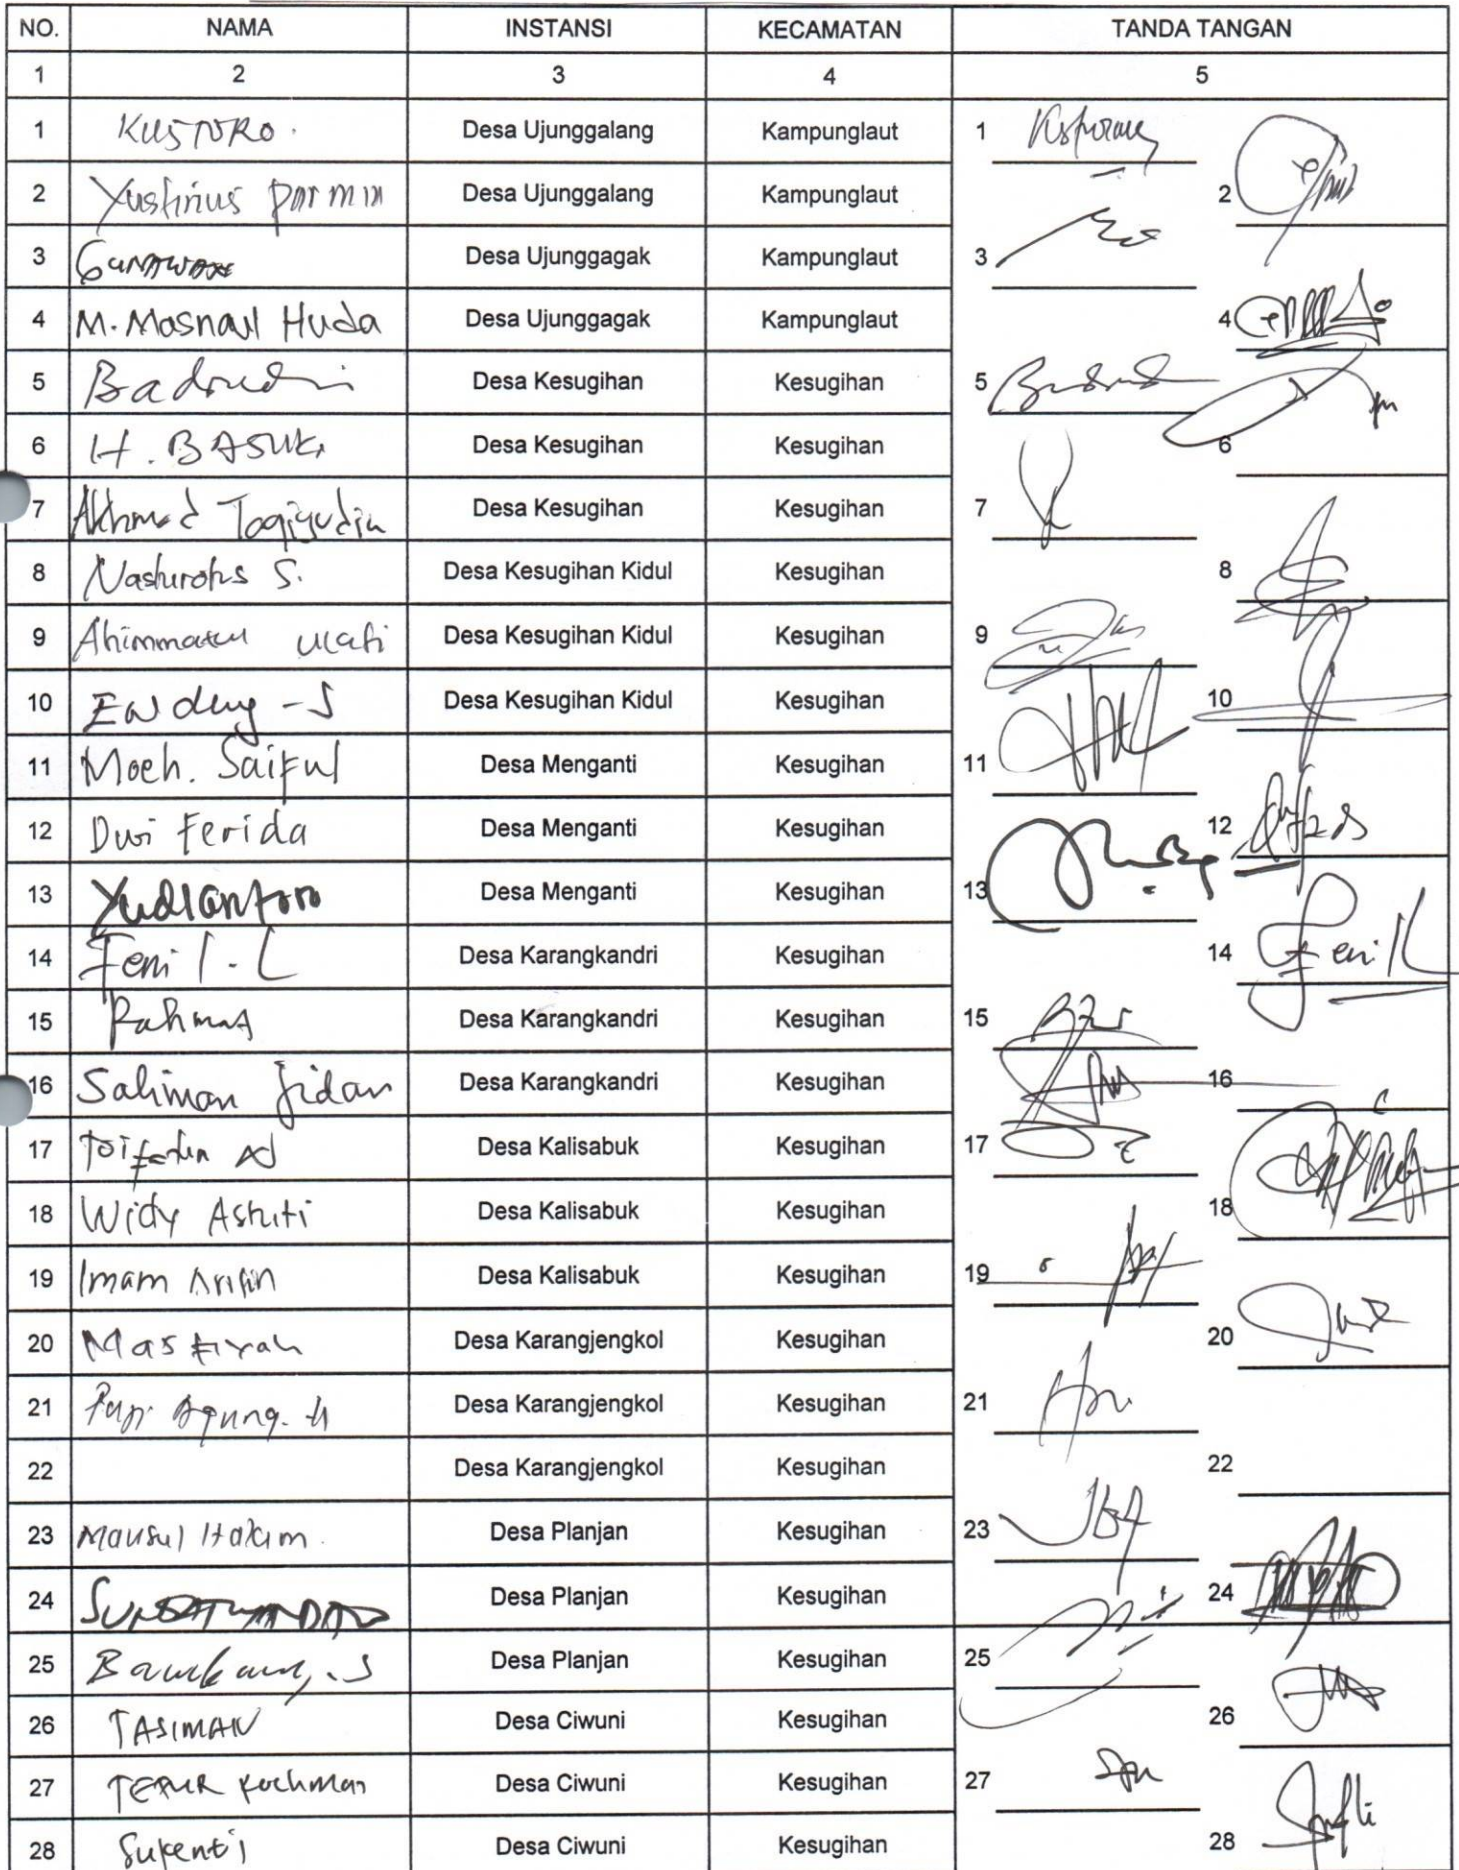 NO. NAMA INSTANSI KECAMATAN TANDA TANGAN
1 2 3 4 5
1 KUSTORO. Desa Ujunggalang Kampunglaut 1
2 Yustinus Parmin Desa Ujunggalang Kampunglaut 2
3 GUNAWAN Desa Ujunggagak Kampunglaut 3
4 M. Masnail Huda Desa Ujunggagak Kampunglaut 4
5 Badrudin Desa Kesugihan Kesugihan 5
6 H. BASUKI Desa Kesugihan Kesugihan 6
7 Akhmad Toqiyudin Desa Kesugihan Kesugihan 7
8 S. Desa Kesugihan Kidul Kesugihan 8
9 Desa Kesugihan Kidul Kesugihan 9
10 Endang -S Desa Kesugihan Kidul Kesugihan 10
11 Moeh. Saiful Desa Menganti Kesugihan 11
12 Dwi Ferida Desa Menganti Kesugihan 12
13 Yudiantoro Desa Menganti Kesugihan 13
14 Feni I. L Desa Karangkandri Kesugihan 14 Feni
15 Rahmat Desa Karangkandri Kesugihan 15
16 Saliman Jidan Desa Karangkandri Kesugihan 16
17 Desa Kalisabuk Kesugihan 17
18 Widy Astuti Desa Kalisabuk Kesugihan 18
19 Imam Arifin Desa Kalisabuk Kesugihan 19
20 Masfiyah Desa Karangjengkol Kesugihan 20
21 Agung. H Desa Karangjengkol Kesugihan 21
22 Desa Karangjengkol Kesugihan 22
23 Hakim. Desa Planjan Kesugihan 23
24 Desa Planjan Kesugihan 24
25 Bambang, .S Desa Planjan Kesugihan 25
26 TASIMAN Desa Ciwuni Kesugihan 26
27 Rochman Desa Ciwuni Kesugihan 27
28 Sukenti Desa Ciwuni Kesugihan 28